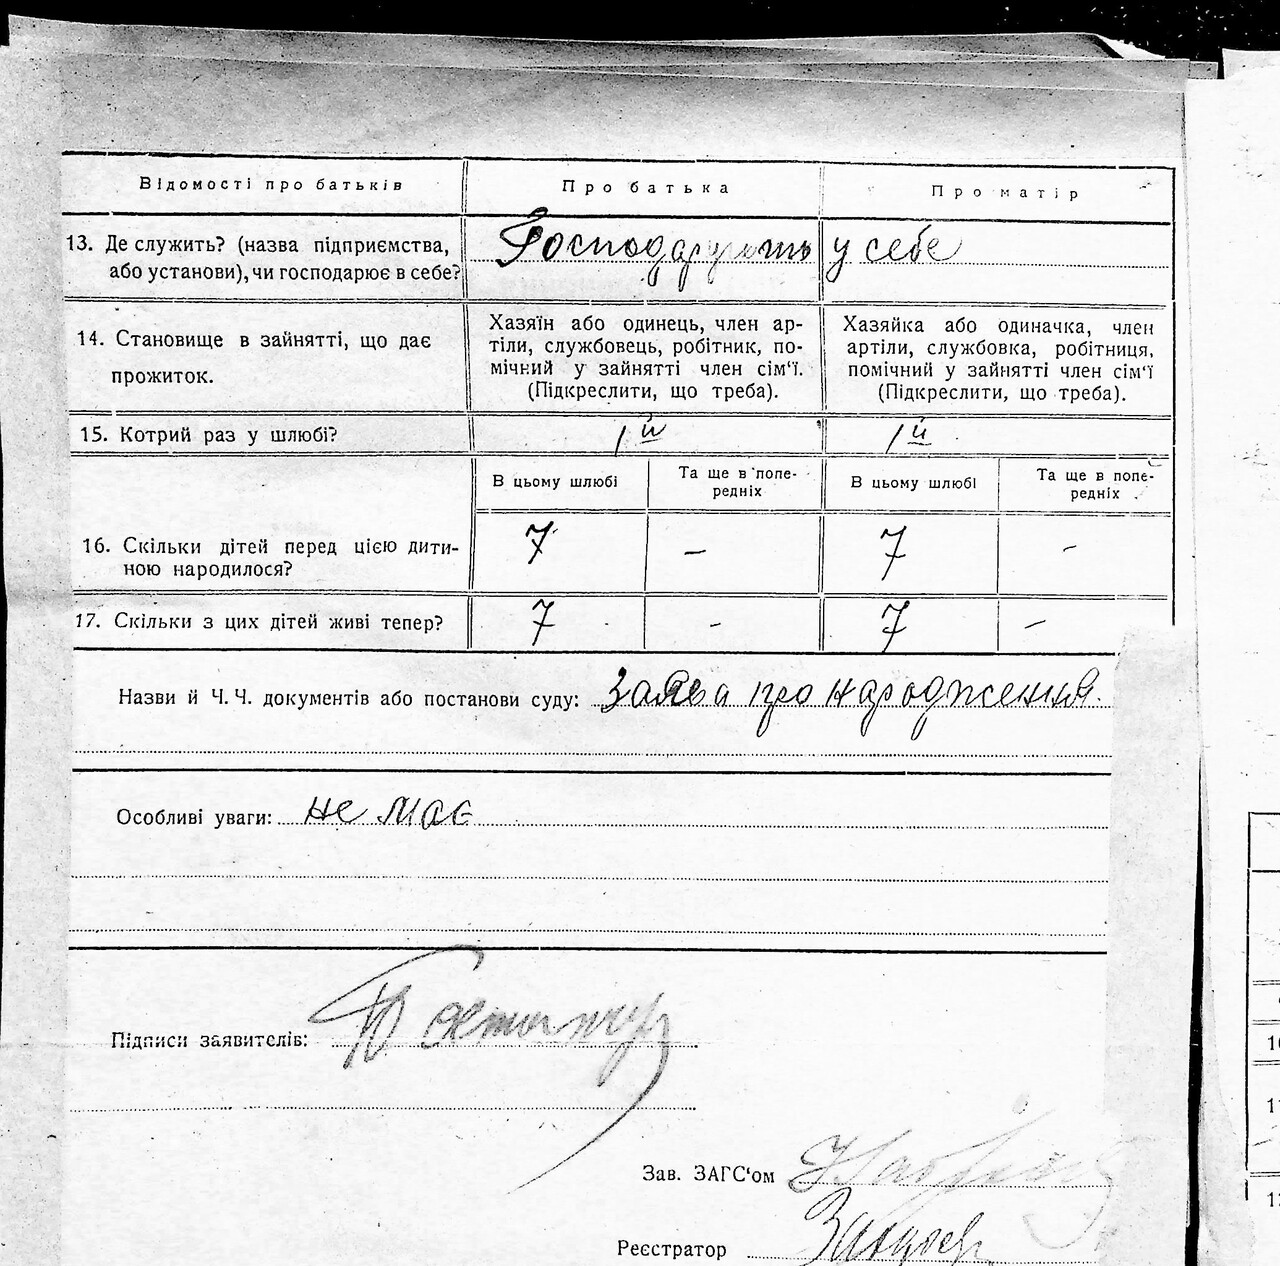 Відомості про батьків Про батька Про матір
13. Де служить? (назва підприємства, або установи), чи господарює в себе? Господарують у себе
14. Становище в зайнятті, що дає прожиток.
Хазяїн або одинець, член ар-
тіли, службовець, робітник, по-
мічний у зайнятті член сім'ї.
(Підкреслити, що треба).
Хазяйка або одиначка, член
артіли, службовка, робітниця,
помічний у зайнятті член сім'ї
(Підкреслити, що треба).
15. Котрий раз у шлюбі? 1й 1й
В цьому шлюбі Та ще в попе-
редніх В цьому шлюбі Та ще в попе-
редніх
16. Скільки дітей перед цією дити-
ною народилося? 7 – 7 –
17. Скільки з цих дітей живі тепер? 7 – 7 –
Назви й Ч. Ч. документів або постанови суду: Заява про народження.
Особливі уваги: не має
Підписи заявителів:
Зав. ЗАГС'ом
Реєстратор
10
11
12